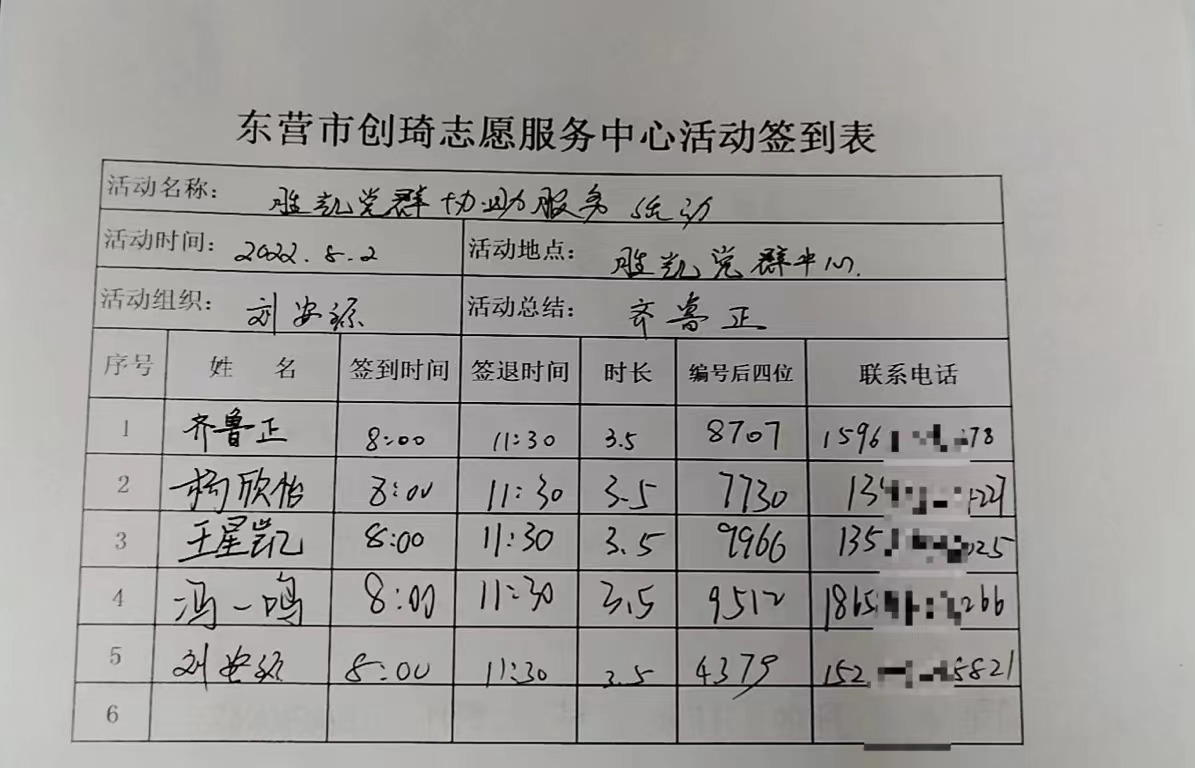 东营市创琦志愿服务中心活动签到表
活动名称： 胜凯党群协助服务活动
活动时间： 2022.8.2 活动地点： 胜凯党群中心.
活动组织： 刘安 活动总结： 齐鲁正
序号 姓 名 签到时间 签退时间 时长 编号后四位 联系电话
1 齐鲁正 8:00 11:30 3.5 8707 1596 78
2 欣怡 8:00 11:30 3.5 7730 13 227
3 王星凯 8:00 11:30 3.5 9966 135 025
4 冯一鸣 8:00 11:30 3.5 9512 1865 266
5 刘安 8:00 11:30 3.5 4379 152 5821
6